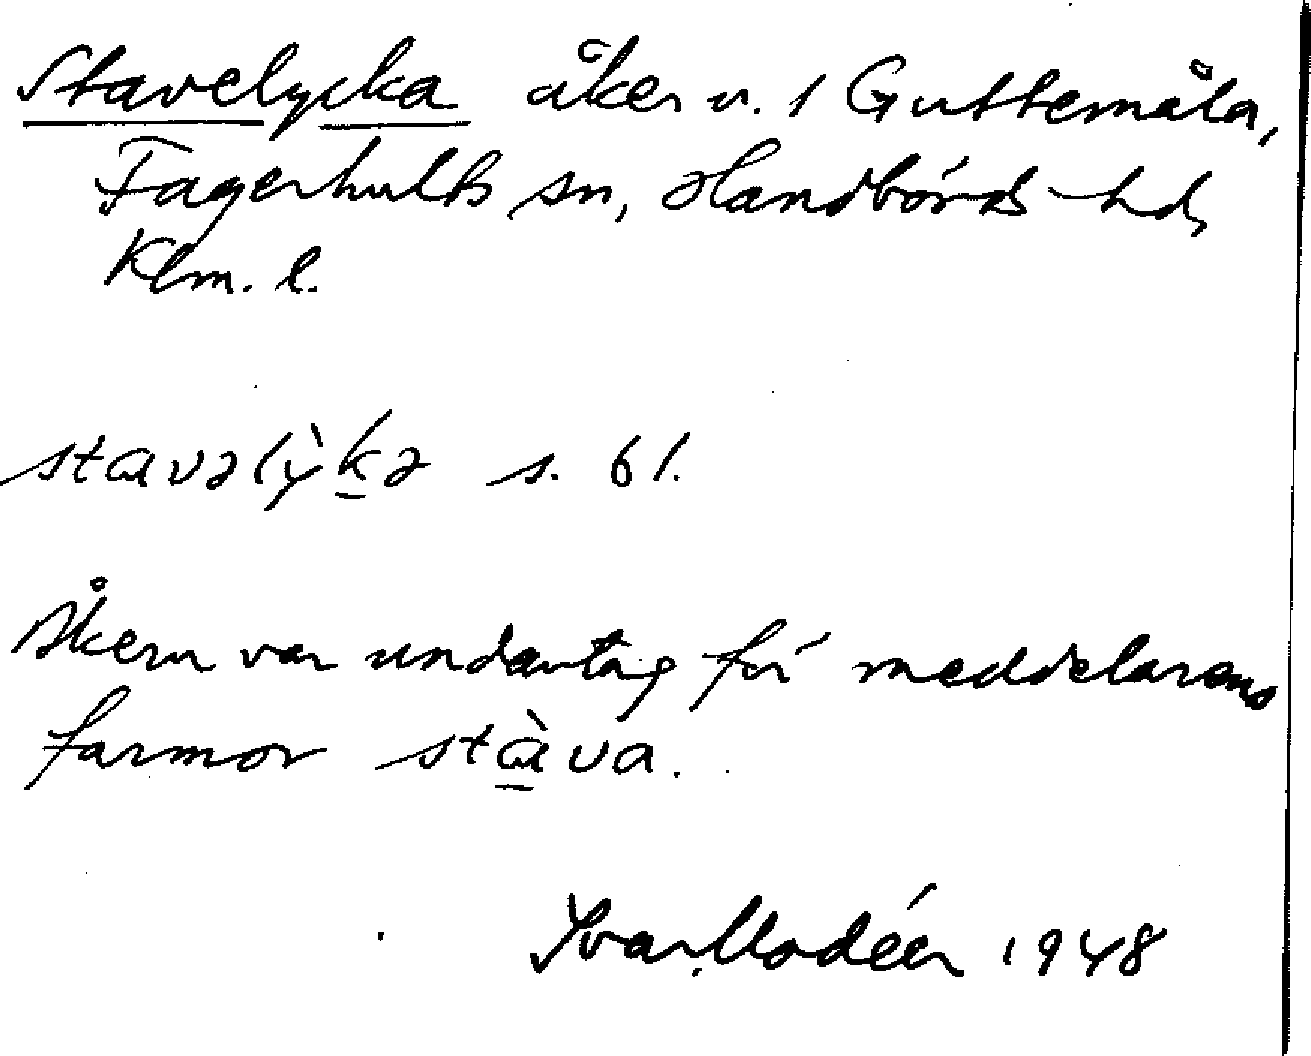 Stavelycka åker n. 1 Guttemåla,
Fagerhults sn, Handbörds hd,
Klm. l.
stavəlỳkə s. 61.
Åkern var undantag för meddelarens
farmor stàva.
Ivar Modéer 1948